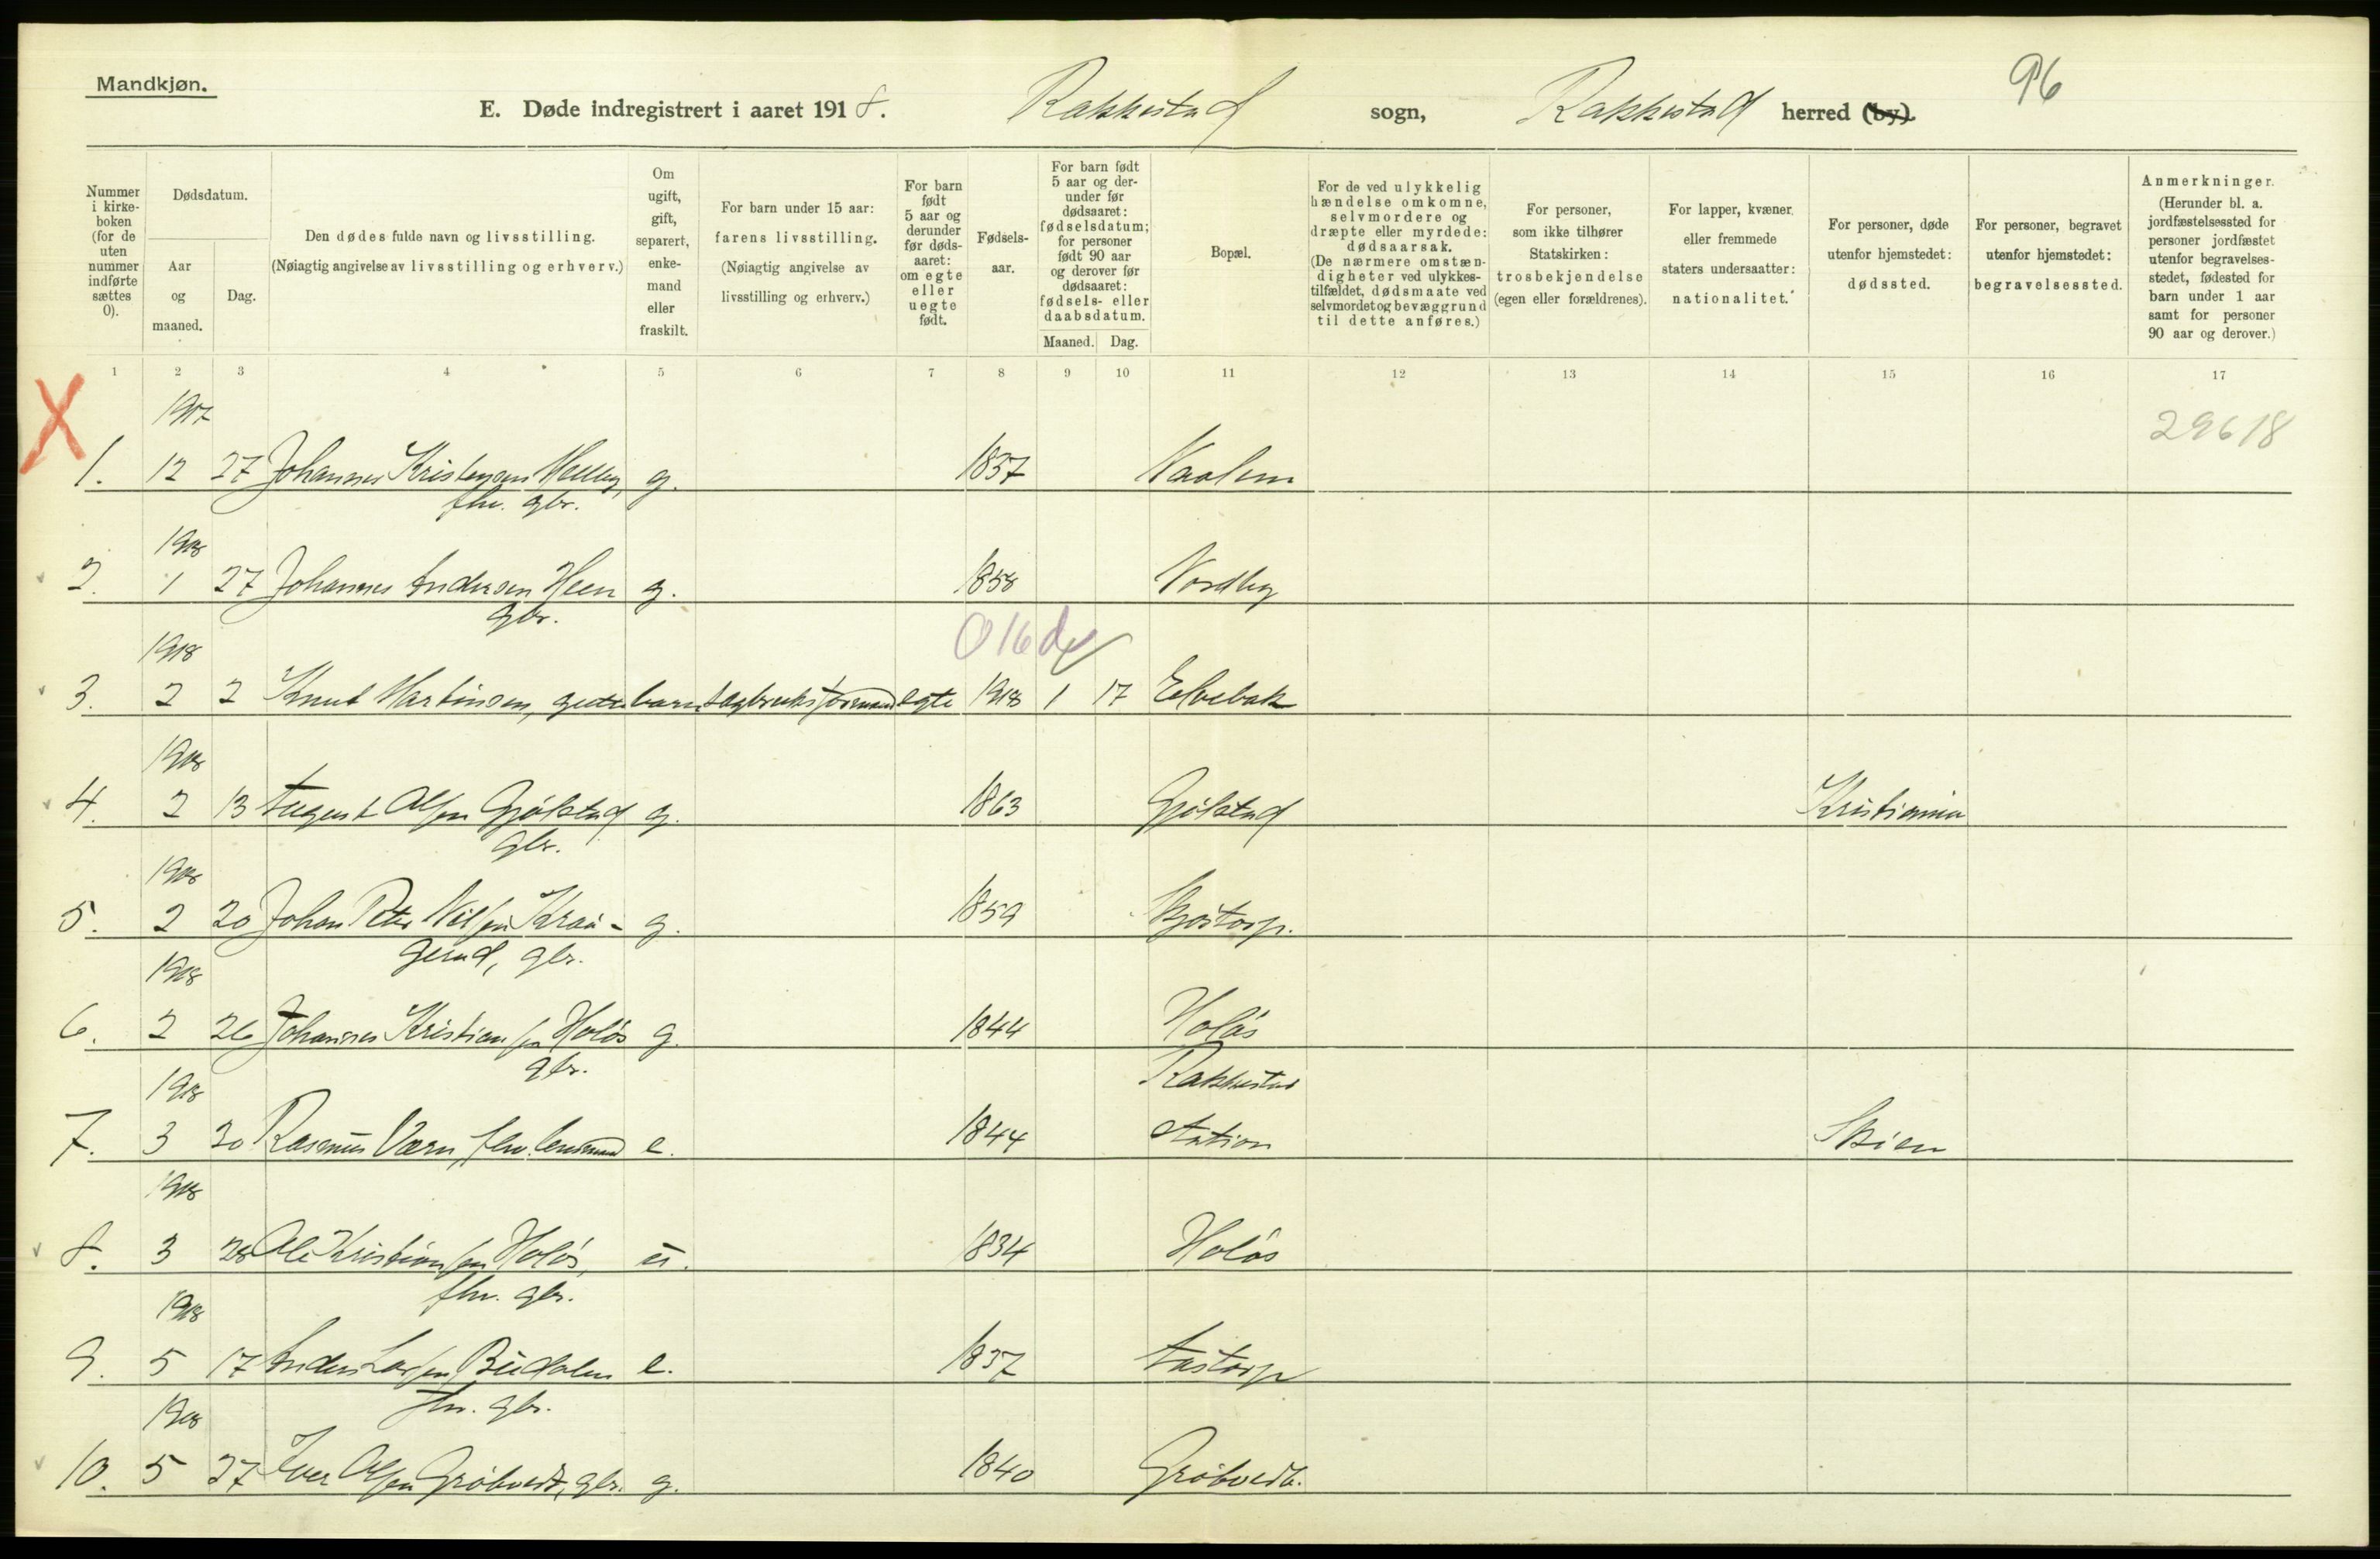 Mandkjøn.
96
E. Døde indregistrert i aaret 1918. Rakkestad sogn, Rakkestad herred (by).
Nummer i kirkeboken (for de uten nummer indførte sættes 0).
Dødsdatum.
Aar og maaned.
Dag.
Den dødes fulde navn og livsstilling. (Nøiagtig angivelse av livsstilling og erhverv.)
Om ugift, gift, separert, enkemand eller fraskilt.
For barn under 15 aar: farens livsstilling. (Nøiagtig angivelse av livsstilling og erhverv.)
For barn født 5 aar og derunder før dødsaaret: om egte eller uegte født.
Fødselsaar.
For barn født 5 aar og derunder før dødsaaret: fødselsdatum; for personer født 90 aar og derover før dødsaaret: fødsels- eller daabsdatum.
Maaned. Dag.
Bopæl.
For de ved ulykkelig hændelse omkomne, selvmordere og dræpte eller myrdede: dødsaarsak. (De nærmere omstændigheter ved ulykkestilfældet, dødsmaate ved selvmordet og bevæggrund til dette anføres.)
For personer, som ikke tilhører Statskirken: trosbekjendelse (egen eller forældrenes).
For lapper, kvæner eller fremmede staters undersaatter: nationalitet.
For personer, døde utenfor hjemstedet: dødssted.
For personer, begravet utenfor hjemstedet: begravelsessted.
Anmerkninger. (Herunder bl. a. jordfæstelsessted for personer jordfæstet utenfor begravelsesstedet, fødested for barn under 1 aar samt for personer 90 aar og derover.)
1 2 3 4 5 6 7 8 9 10 11 12 13 14 15 16 17
X
1917
29618
1. 12 27 Johannes Kristensen g. 1837
fhv. gbr.
1918
2. 1 27 Johannes Andersen Heen g. 1858 Nordby
gbr.
1918
016d
3. 2 2 Knut Martinsen, guttebarn sagbruksformand egte 1918 1 17 Elvebak
1918
4. 2 13 August Olsen Gjølstad g. 1863 Gjølstad Kristiania
gbr.
1918
5. 2 20 Johan Peter Nilsen Kraa- g. 1859
gerud, gbr.
1918
6. 2 26 Johannes Kristiansen Holøs g. 1844 Holøs
gbr.
1918 Rakkestad
7. 3 30 Rasmus Værn, fhv. lensmand e. 1844 station Skien
1918
8. 3 28 Ole Kristiansen Holøs, u. 1834 Holøs
fhv. gbr.
1918
9. 5 17 Anders Larsen Budalen e. 1837 Aastorp
fhv. gbr.
1918
10. 5 27 Iver Olsen Grøtvedt, gbr. g. 1840 Grøtvedt.